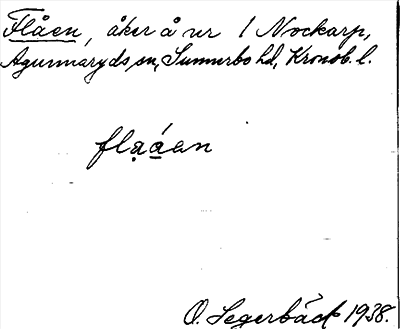 Flåen, åker å nr 1 Nockarp,
Agunnaryds sn, Sunnerbo hd, Kronob. l.
flạáen
O. Segerbäck 1938.